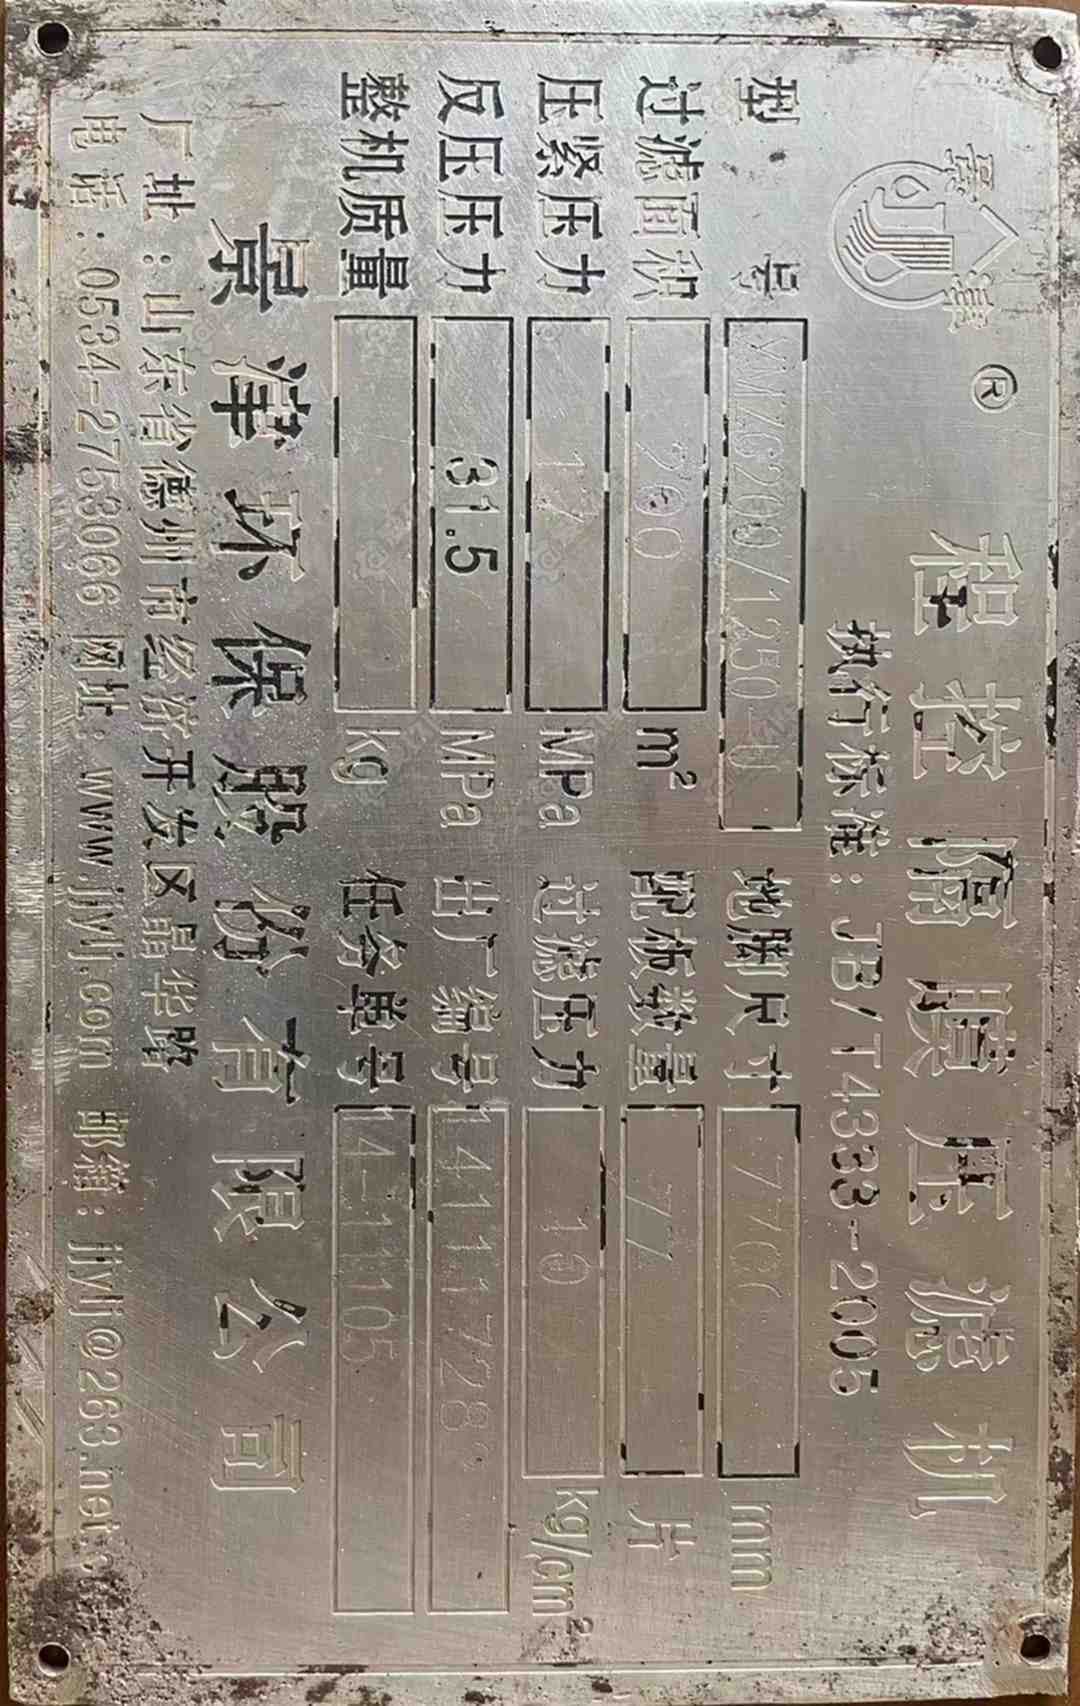 景津 ®
程控隔膜压滤机
执行标准：JB/T4333-2005
型号 XMZG200/1250-U 地脚尺寸 mm
过滤面积 200 m² 配板数量 77 片
压紧压力 17 MPa 过滤压力 10 kg/cm²
反压压力 31.5 MPa 出厂编号
整机质量 kg 任务单号 14-1105
景津环保股份有限公司
厂址：山东省德州市经济开发区晶华路
电话：0534-2753066 网址：www.jjylj.com 邮箱：jjylj@263.net